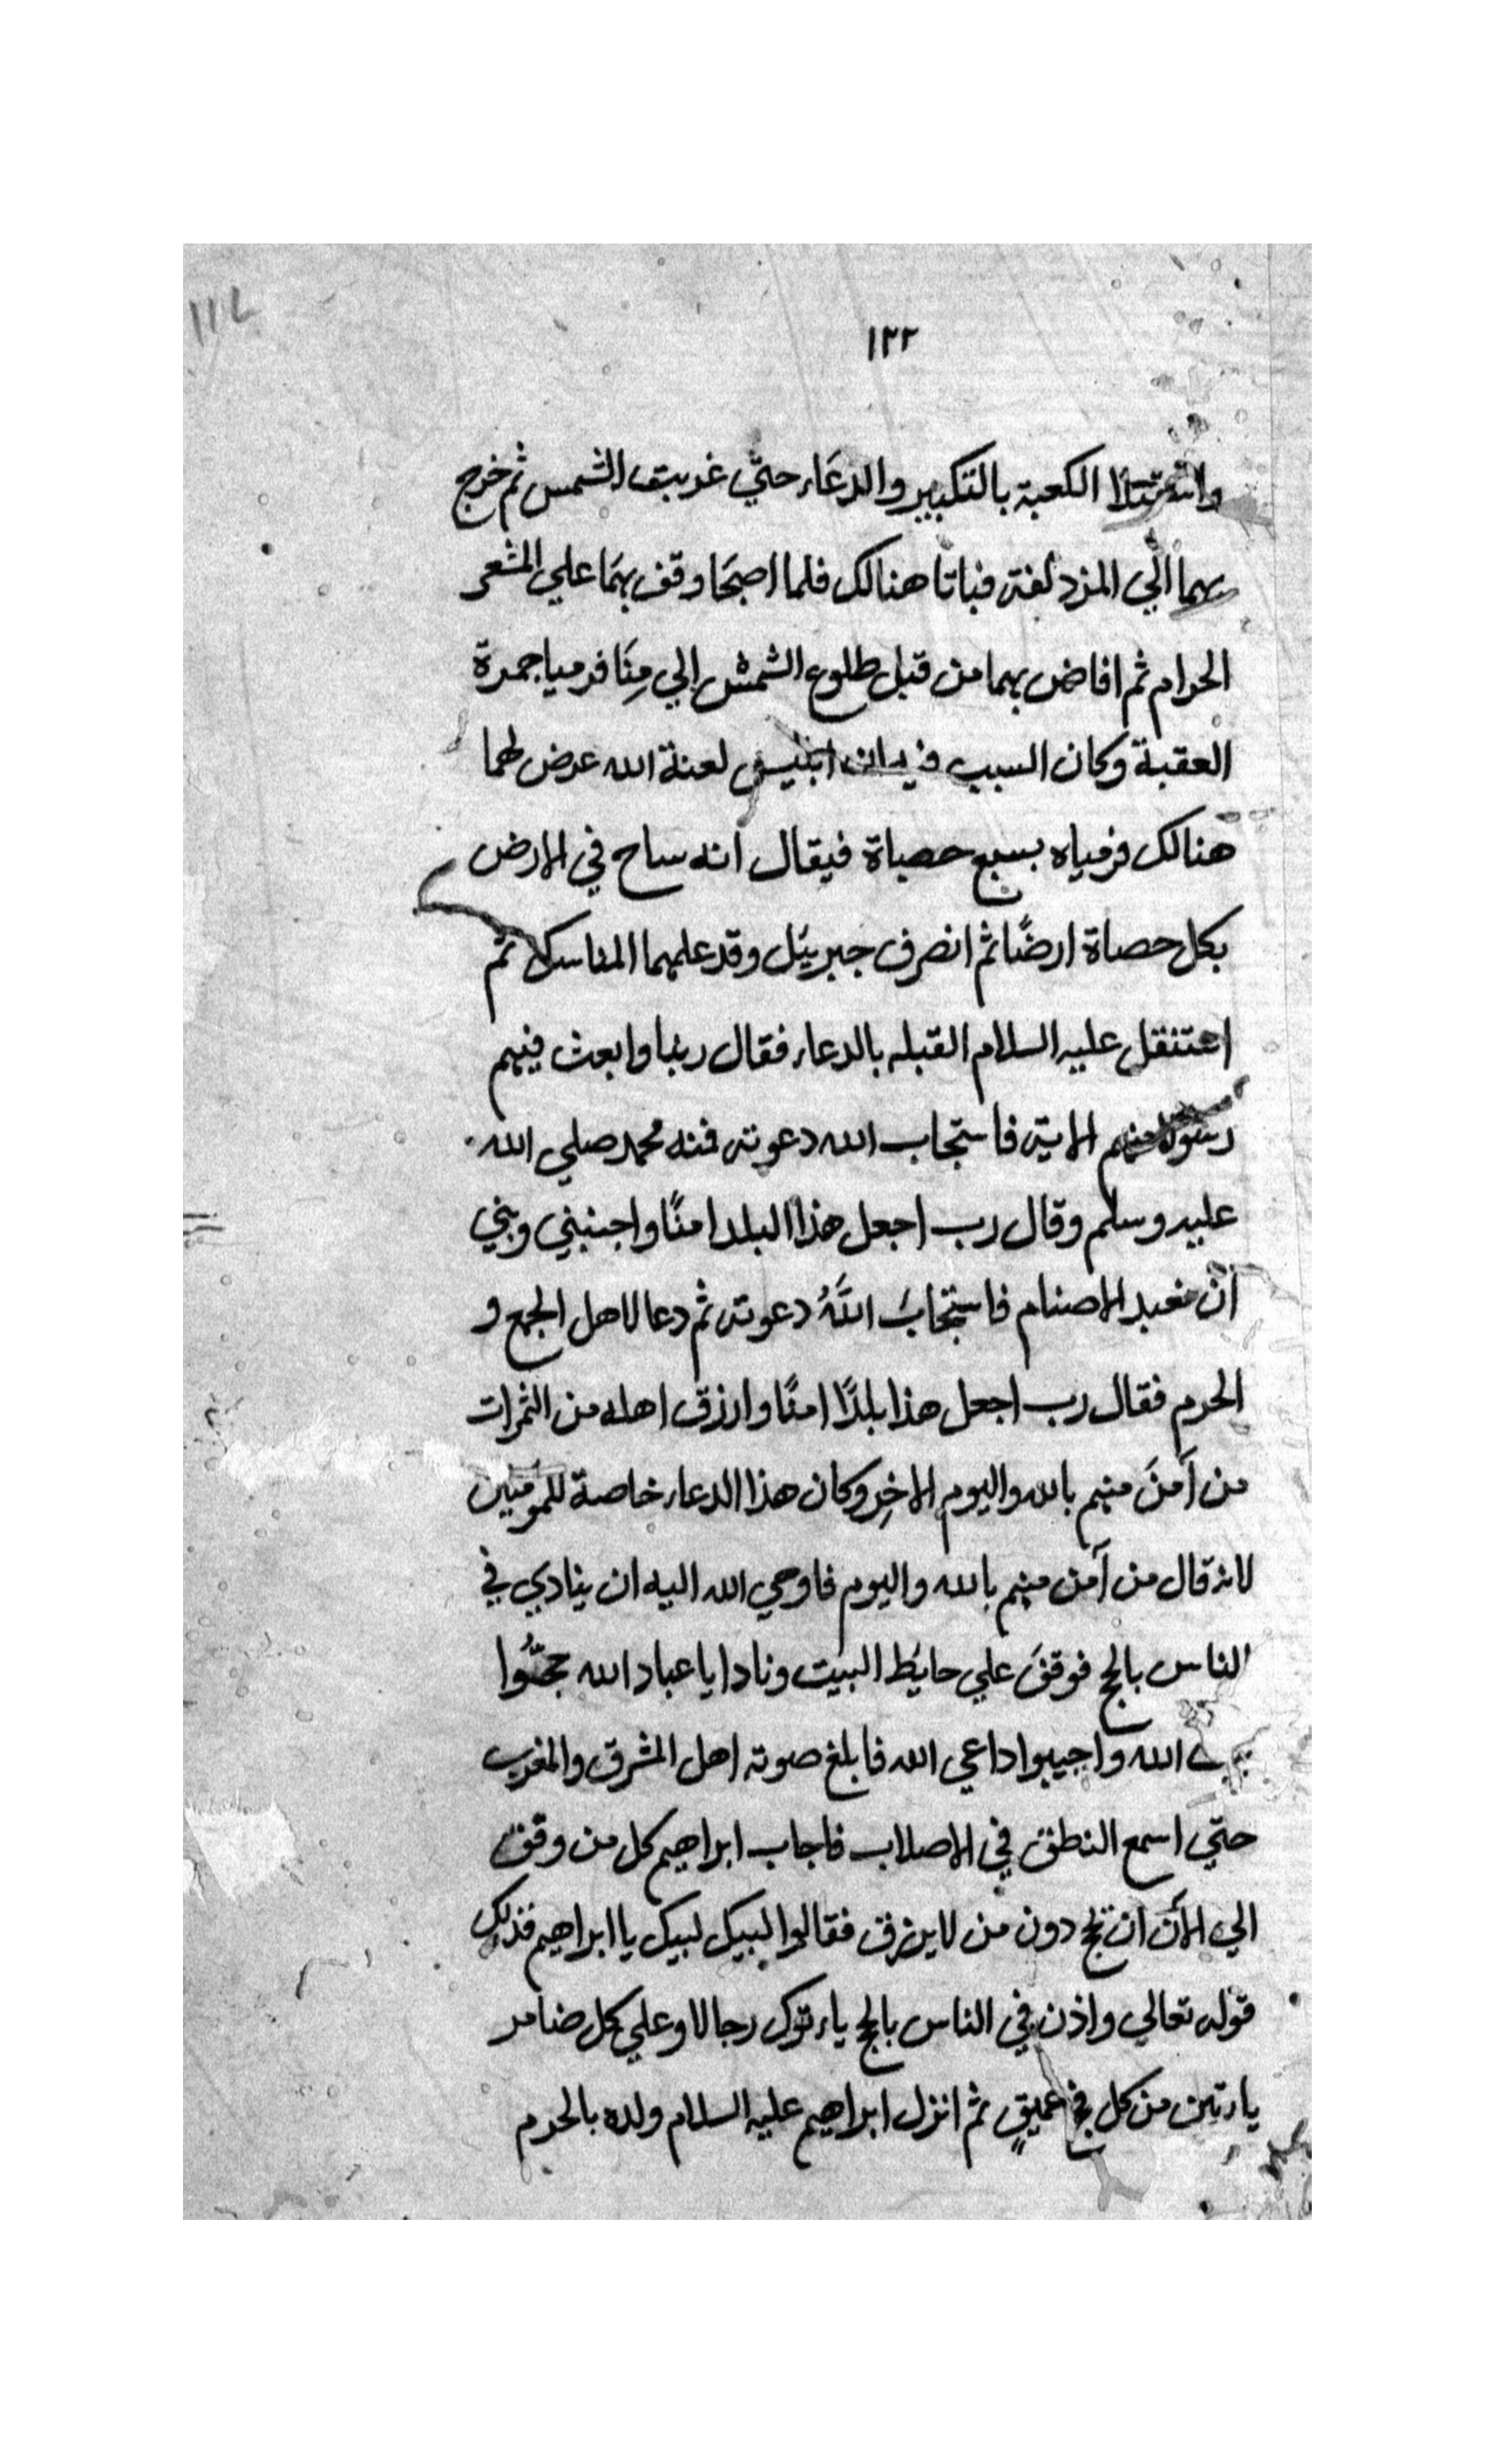 ١١٢
١٢٢
الكعبة بالتكبير والدعاء حتي غربت الشمس ثم خرج
بهما الي المزدلفة فباتا هنالك فلما اصبحا وقف بهما علي المشعر
الحرام ثم افاض بهما من قبل طلوع الشمس الي منًا فرميا جمرة
العقبة وكان السبب في ذلك ان ابليس لعنة الله عرض لهما
هنالك فرمياه بسبع حصياة فيقال انه ساح في الارض
بكل حصاة ارضًا ثم انصرف جبرييل وقد علمهما المناسك ثم
عليه السلام القبله بالدعاء فقال ربنا وابعث فيهم
رسولا منهم الاية فاستجاب الله دعوته فمنه محمد صلي الله
عليه وسلم وقال رب اجعل هذا البلد امنًا واجنبني وبني
ان نعبد الاصنام فاستجابَ اللَّهُ دعوته ثم دعا لاهل الجمع و
الحرم فقال رب اجعل هذا بلدًا امنًا وارزق اهله من الثمرات
من آمنَ منهم بالله واليوم الاخِر وكان هذا الدعاء خاصة للمومنين
لانه قال من آمن منهم بالله واليوم فاوحي الله اليه ان ينادي في
الناس بالحج فوقفَ علي حايط البيت ونادا يا عباد الله حجُّوا
الله واجيبوا داعي الله فابلغ صوته اهل المشرق والمغرب
حتي اسمع النطف في الاصلاب فاجاب ابراهيم كل من وقف
الي الآن ان يحج دون من لا يرزق فقالوا لبيك لبيك يا ابراهيم فذلك
قوله تعالي واذن في الناس بالحج ياءتوك رجالا وعلي كل ضامر
ياءتين من كل فج عميقٍ ثم انزل ابراهيم عليه السلام ولده بالحرم